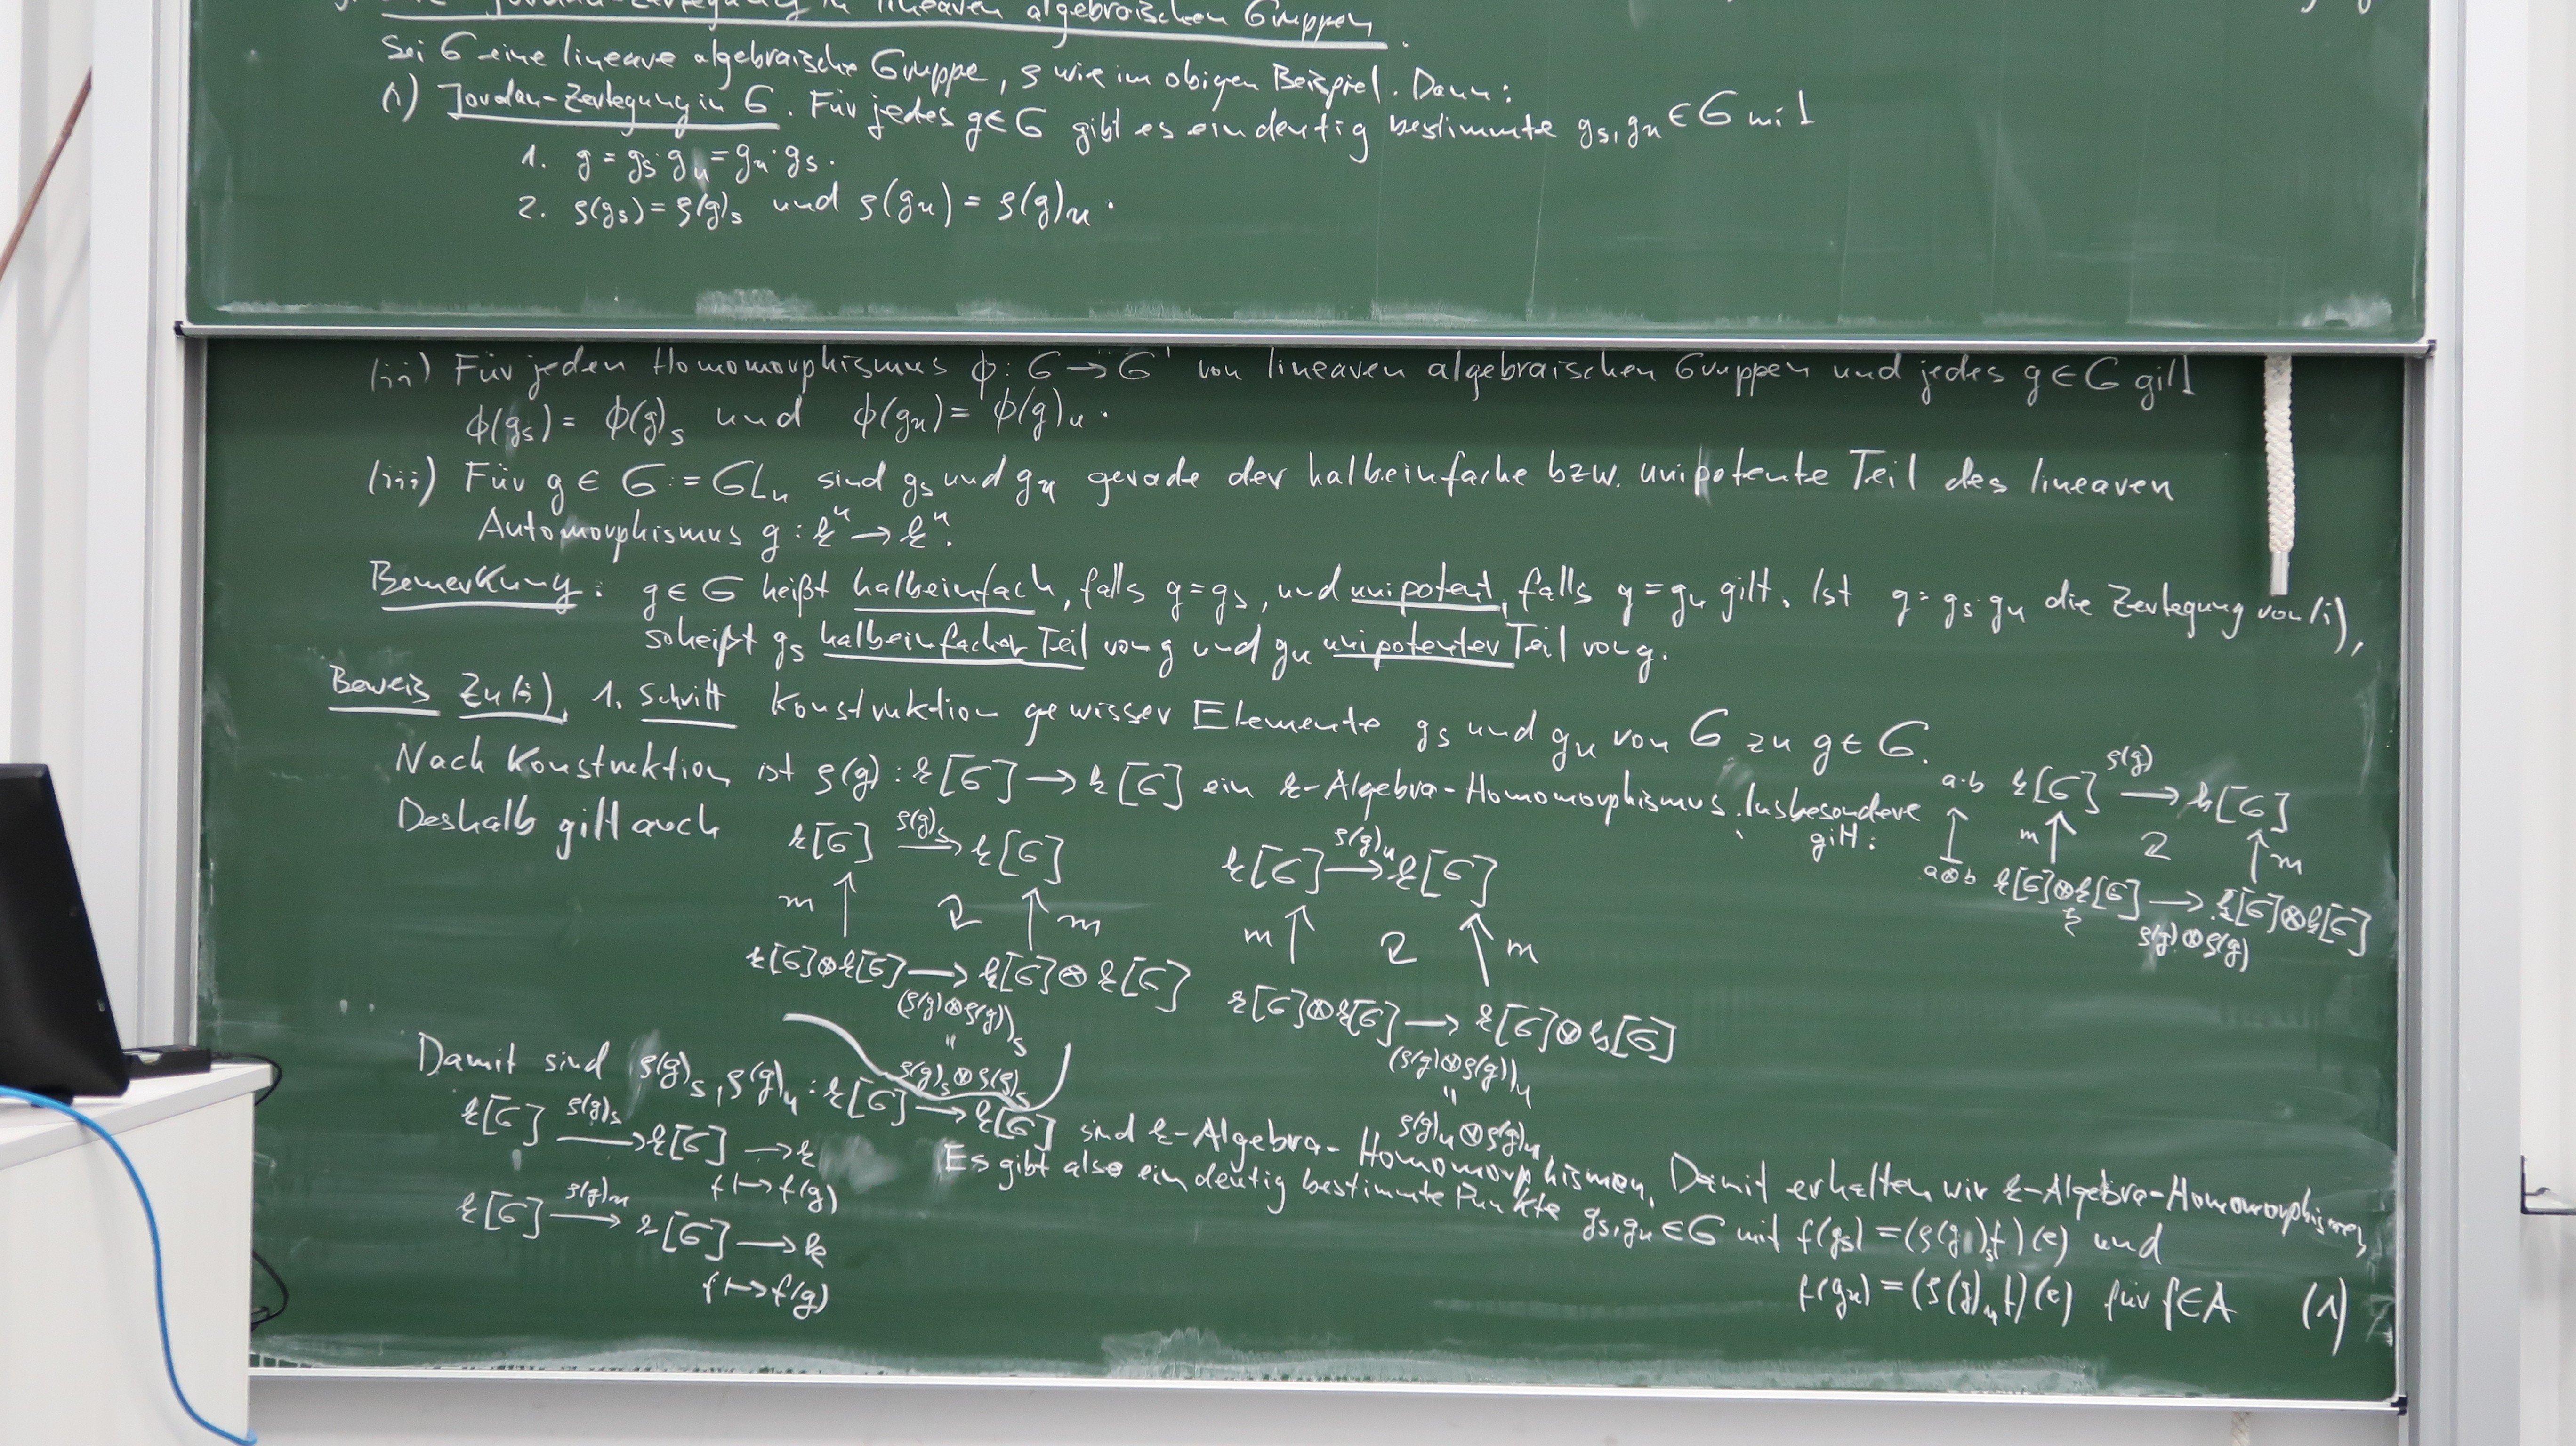 Jordan-Zerlegung in linearen algebraischen Gruppen.
Sei G eine lineare algebraische Gruppe, ρ wie im obigen Beispiel. Dann:
(i) Jordan-Zerlegung in G. Für jedes g∈G gibt es eindeutig bestimmte gₛ, gᵤ ∈ G mit
1. g = gₛ·gᵤ = gᵤ·gₛ.
2. ρ(gₛ) = ρ(g)ₛ und ρ(gᵤ) = ρ(g)ᵤ.
(ii) Für jeden Homomorphismus ϕ: G → G' von linearen algebraischen Gruppen und jedes g ∈ G gilt
ϕ(gₛ) = ϕ(g)ₛ und ϕ(gᵤ) = ϕ(g)ᵤ.
(iii) Für g ∈ G := GLₙ sind gₛ und gᵤ gerade der halbeinfache bzw. unipotente Teil des linearen
Automorphismus g: kⁿ → kⁿ.
Bemerkung: g∈G heißt halbeinfach, falls g=gₛ, und unipotent, falls g=gᵤ gilt. Ist g=gₛ·gᵤ die Zerlegung von (i),
so heißt gₛ halbeinfacher Teil von g und gᵤ unipotenter Teil von g.
Beweis Zu (i). 1. Schritt Konstruktion gewisser Elemente gₛ und gᵤ von G zu g∈G.
Nach Konstruktion ist ρ(g): k[G] → k[G] ein k-Algebra-Homomorphismus. Insbesondere
gilt:
a·b k[G] →ρ(g) k[G]
↑ m↑ ↑m
a⊗b k[G]⊗k[G] → k[G]⊗k[G]
k ρ(g)⊗ρ(g)
Deshalb gilt auch
k[G] →ρ(g)ₛ k[G] k[G] →ρ(g)ᵤ k[G]
m↑ ↑m m↑ ↑m
k[G]⊗k[G] → k[G]⊗k[G] k[G]⊗k[G] → k[G]⊗k[G]
(ρ(g)⊗ρ(g))ₛ (ρ(g)⊗ρ(g))ᵤ
" "
ρ(g)ₛ⊗ρ(g)ₛ ρ(g)ᵤ⊗ρ(g)ᵤ
Damit sind ρ(g)ₛ, ρ(g)ᵤ: k[G] → k[G] sind k-Algebra-Homomorphismen. Damit erhalten wir k-Algebra-Homomorphismen
k[G] →ρ(g)ₛ k[G] → k
f ↦ f(g)
k[G] →ρ(g)ᵤ k[G] → k
f ↦ f(g)
Es gibt also eindeutig bestimmte Punkte gₛ, gᵤ ∈ G mit f(gₛ) = (ρ(g)ₛf)(e) und
f(gᵤ) = (ρ(g)ᵤf)(e) für f∈A (1)